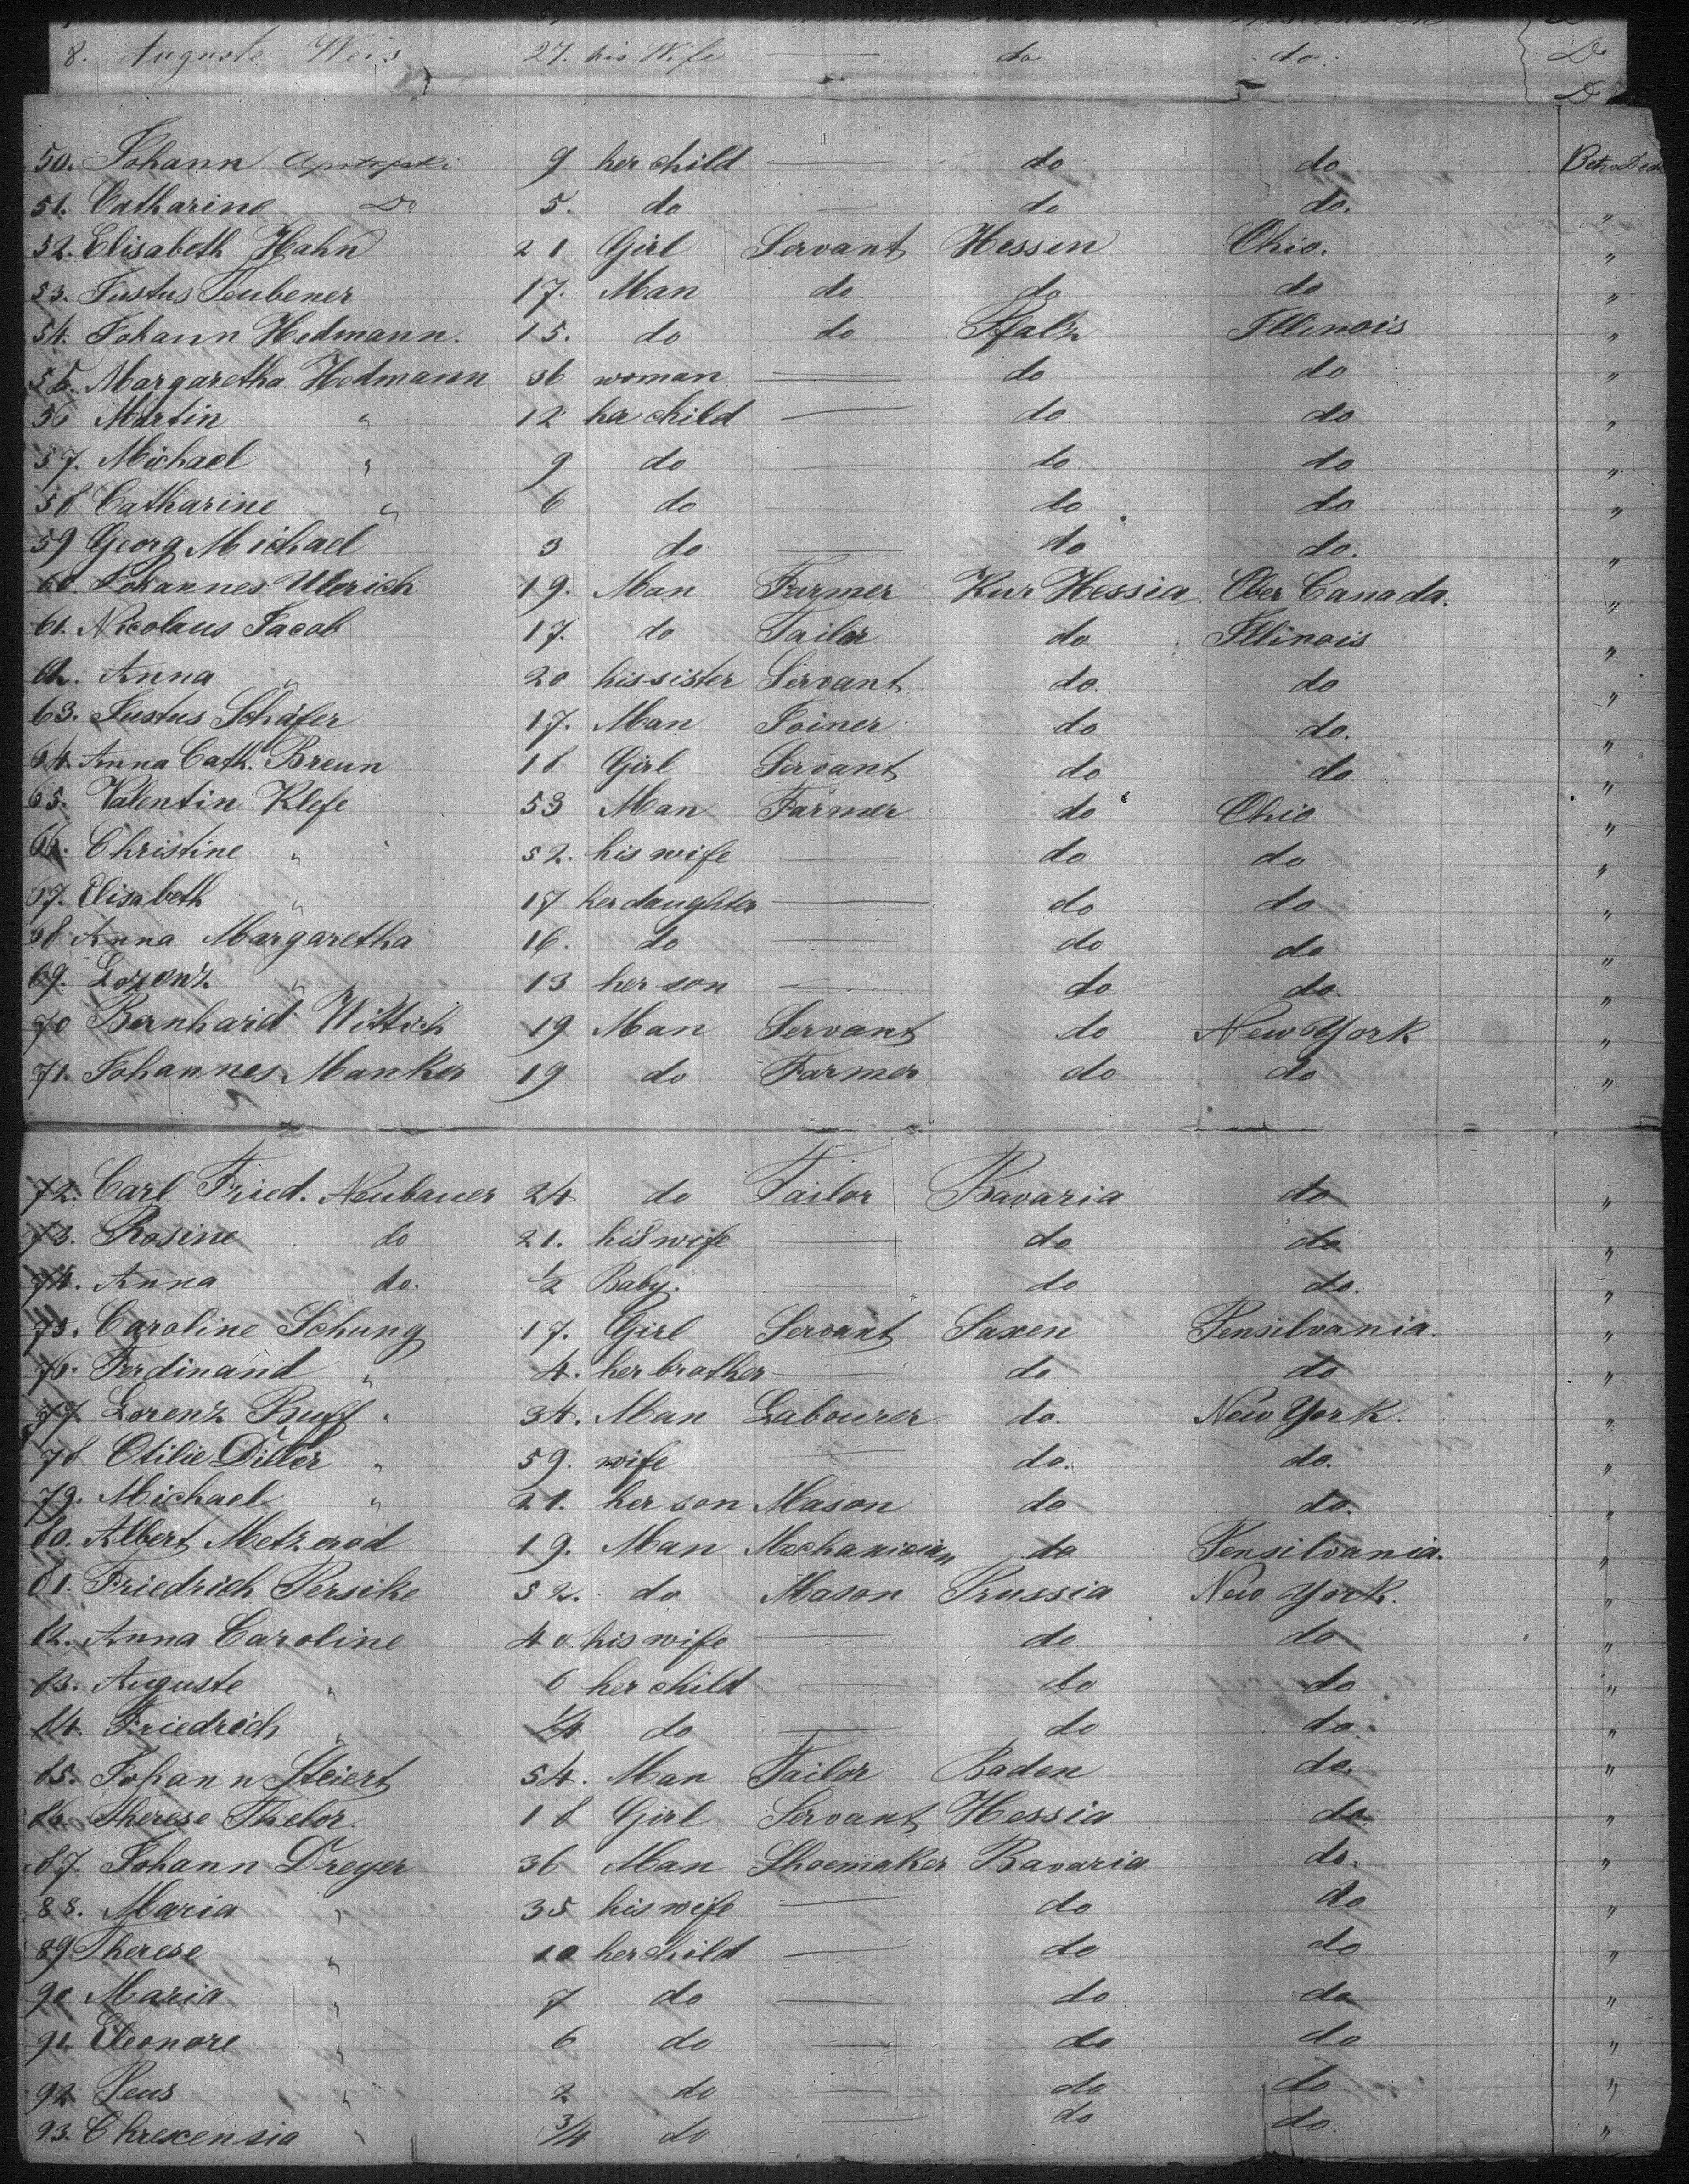 8. Auguste Weis 27. his Wife — do do. D
50. Johann 9 her child — do do Betw Deck
51. Catharine Do 5. do — do do. "
52. Elisabeth Hahn 21 Girl Servant Hessen Ohio. "
53. Justus Teubener 17. Man do do do "
54. Johann Hedmann. 15. do do Pfalz Illinois "
55. Margaretha Hedmann 36 woman — do do "
56 Martin " 12 her child — do do "
57. Michael " 9 do — do do "
58 Catharine " 6 do — do do "
59 Georg Michael 3 do — do do. "
60. Johannes Ulerich 19. Man Farmer Kur Hessia Ober Canada. "
61. Nicolaus Jacob 17. do Tailor do Illinois "
62. Anna " 20 his sister Servant do. do "
63. Justus Schäfer 17. Man Joiner do do. "
64. Anna Cath. Breun 18 Girl Servant do do "
65. Valentin Klefe 53 Man Farmer do Ohio "
66. Christine " 52. his wife — do do "
67. Elisabeth " 17 her daughter — do do "
68 Anna Margaretha 16. do — do do "
69. Lorenz " 13 her son — do do. "
70 Bernhard Wittich 19 Man Servant do New York "
71. Johannes Manker 19 do Farmer do do "
72. Carl Fried. Neubauer 24 do Tailor Bavaria do "
73. Rosine do 21. his wife — do do "
74. Anna do. 1/2 Baby. — do do. "
75. Caroline Schung 17. Girl Servant Saxen Pensilvania. "
76. Ferdinand " 4. her brother — do do "
77. Lorenz Buff " 34. Man Labourer do. New York. "
78. Otilie Diller " 59. wife — do. do. "
79. Michael " 21. her son Mason do do. "
80. Albert Metzerod 19. Man Mechanician do Pensilvania. "
81. Friedrich Persike 52. do Mason Prussia New York. "
82. Anna Caroline 40 his wife — do do "
83. Auguste " 6 her child — do do "
84. Friedrich " 1/4 do — do do. "
85. Johann Steiert 54. Man Tailor Baden do. "
86. Therese Thelor. 18 Girl Servant Hessia do. "
87. Johann Dreyer 36 Man Shoemaker Bavaria do. "
88. Maria " 35 his wife — do do "
89 Therese " 10 her child — do do "
90 Maria " 7 do — do do "
91. Eleonore " 6 do — do do "
92 Peus " 2 do — do do "
93. Chrexensia " 3/4 do — do do. "